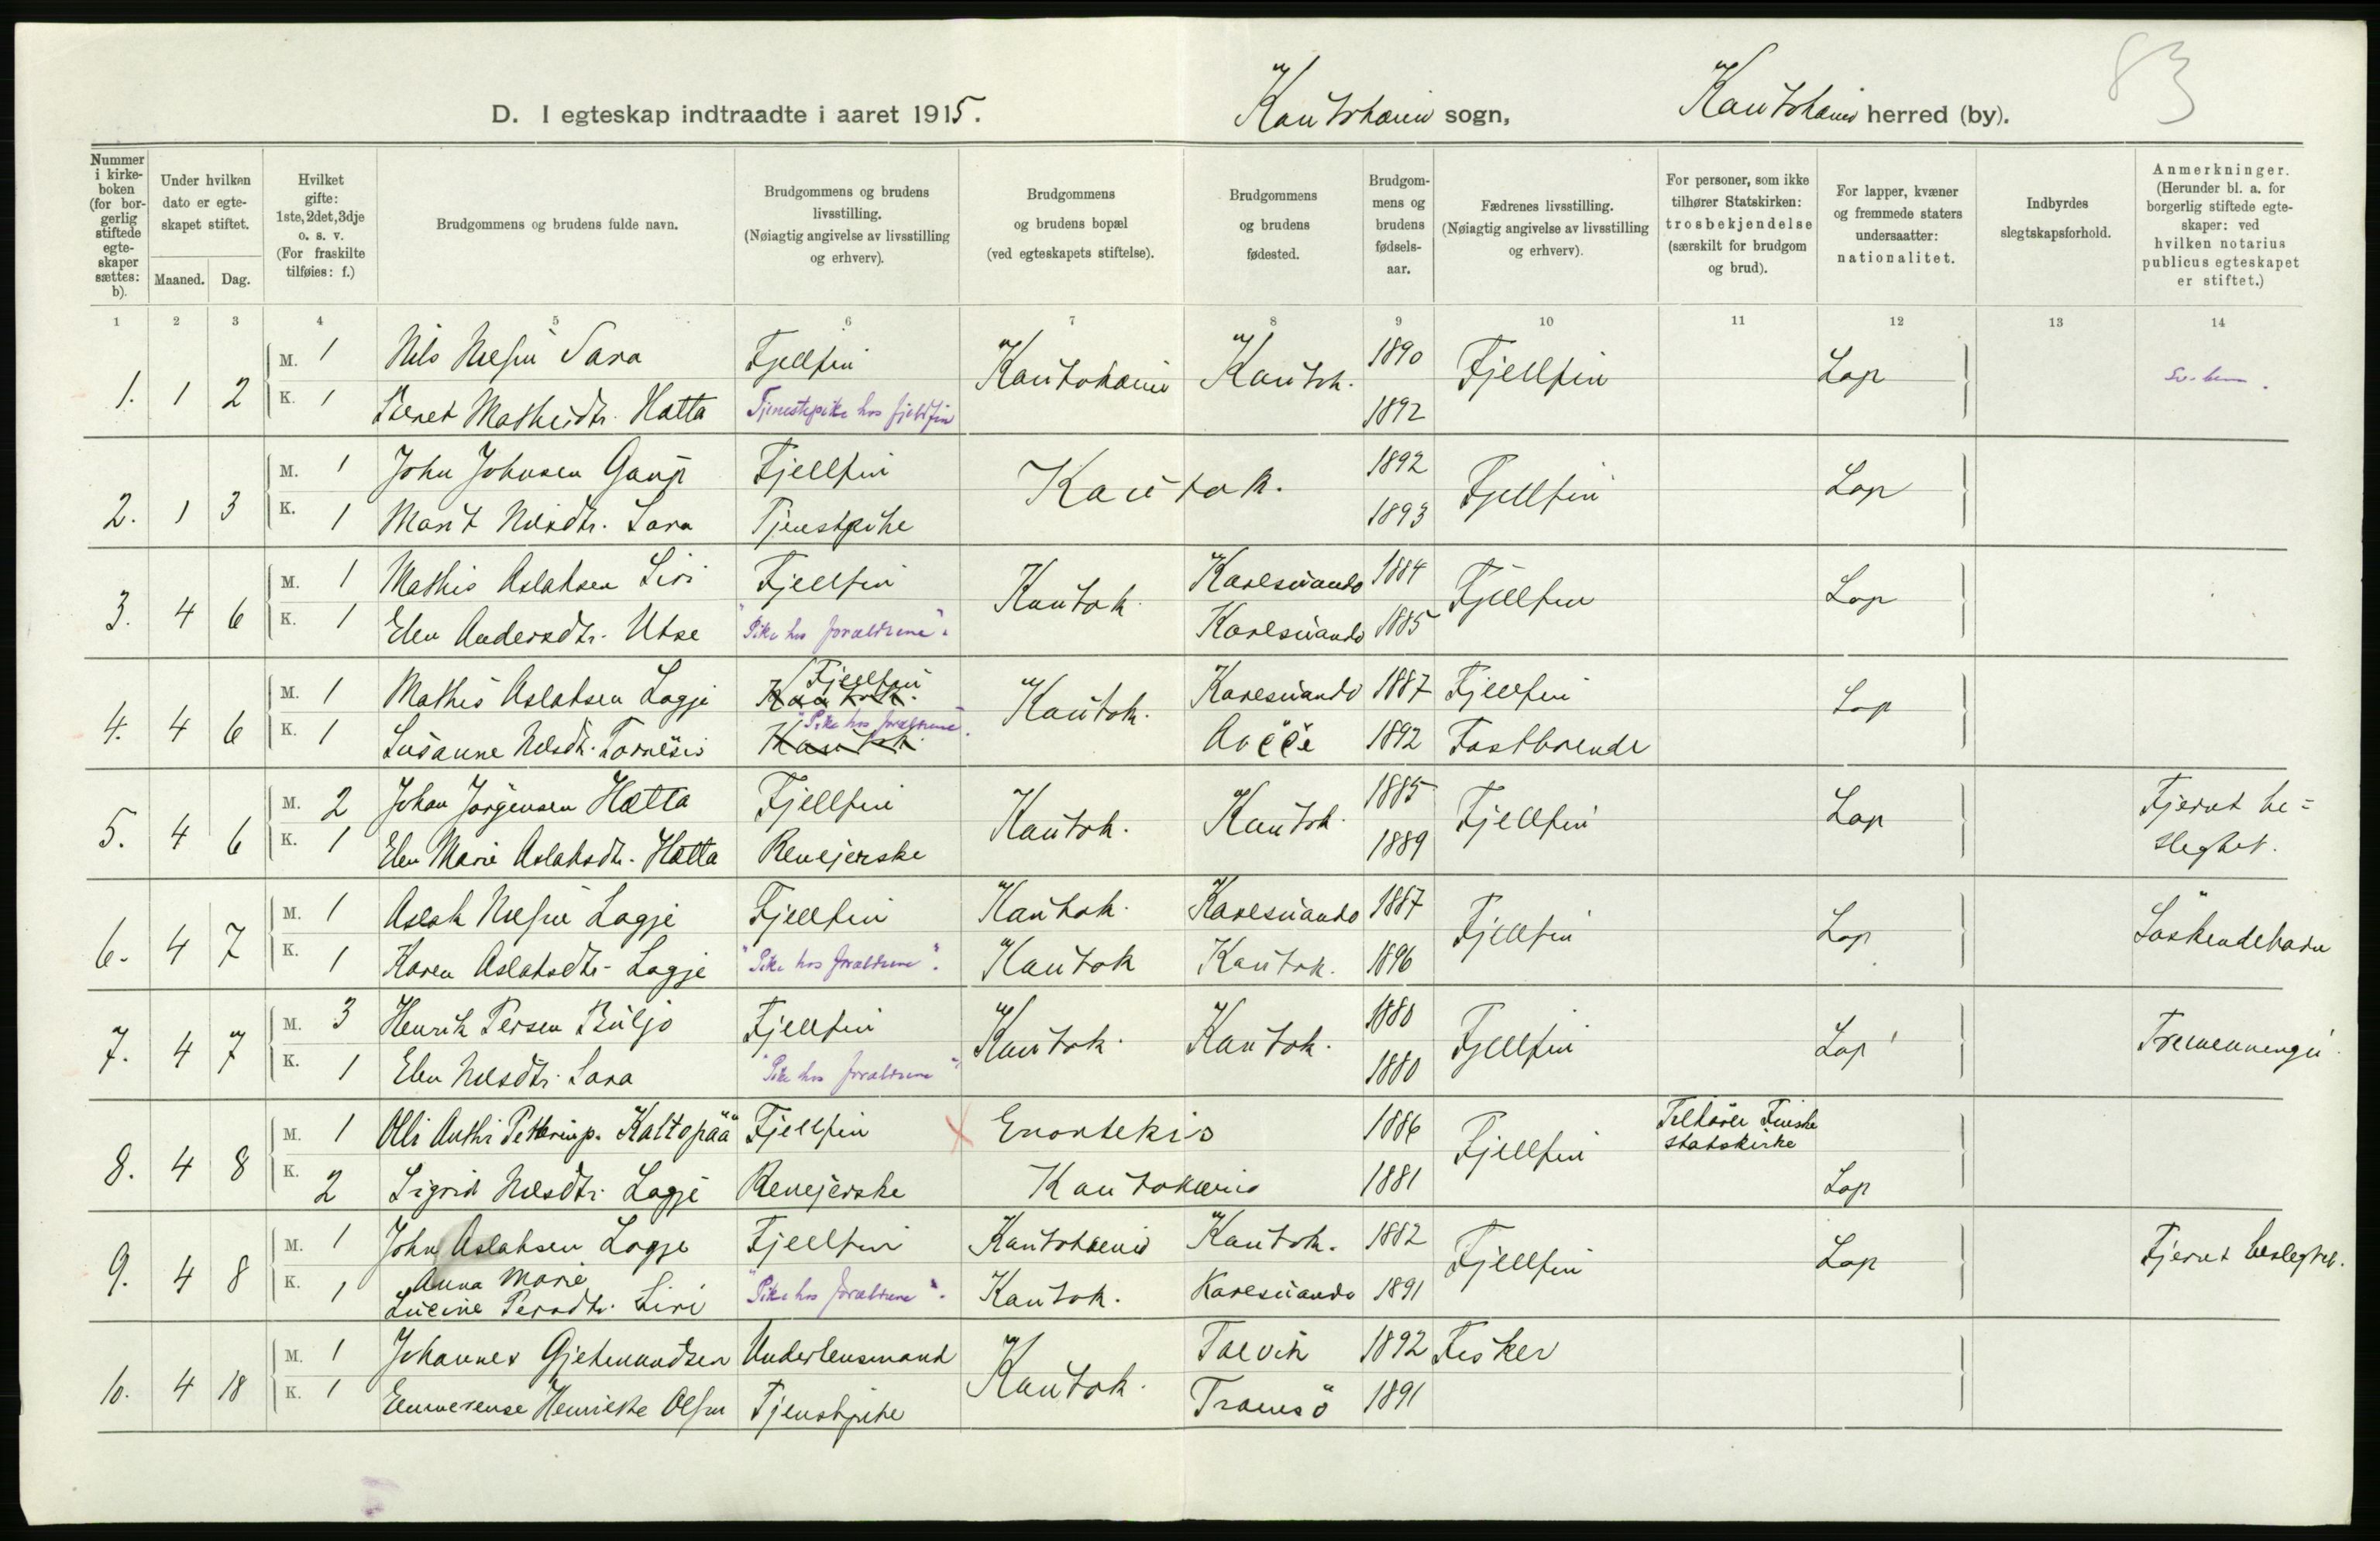 83
D. I egteskap indtraadte i aaret 1915. Kautokeino sogn, Kautokeino herred (by).
Nummer i kirkeboken (for borgerlig stiftede egteskaper sættes: b).
Under hvilken dato er egteskapet stiftet.
Maaned. Dag.
Hvilket gifte: 1ste, 2det, 3dje o. s. v. (For fraskilte tilføies: f.)
Brudgommens og brudens fulde navn.
Brudgommens og brudens livsstilling. (Nøiagtig angivelse av livsstilling og erhverv).
Brudgommens og brudens bopæl (ved egteskapets stiftelse).
Brudgommens og brudens fødested.
Brudgommens og brudens fødselsaar.
Fædrenes livsstilling. (Nøiagtig angivelse av livsstilling og erhverv).
For personer, som ikke tilhører Statskirken: trosbekjendelse (særskilt for brudgom og brud).
For lapper, kvæner og fremmede staters undersaatter: nationalitet.
Indbyrdes slegtskapsforhold.
Anmerkninger. (Herunder bl. a. for borgerlig stiftede egteskaper: ved hvilken notarius publicus egteskapet er stiftet.)
1 2 3 4 5 6 7 8 9 10 11 12 13 14
1. 1 2 M. 1 Nils Nilsen Sara Fjellfin Kautokeino Kautok. 1890 Fjellfin Lap
K. 1 Beret Mathisdtr. Hætta Tjenestepike hos fjeldfin 1892
2. 1 3 M. 1 John Johnsen Gaup Fjellfin Kautok. 1892 Fjellfin Lap
K. 1 Marit Nilsdtr. Sara Tjenstpike 1893
3. 4 6 M. 1 Mathis Aslaksen Siri Fjellfin Kautok. Karesuando 1884 Fjellfin Lap
K. 1 Elen Andersdtr. Utse "Pike hos forældrene". Karesuando 1885
4. 4 6 M. 1 Mathis Aslaksen Logje Fjellfin Kautok. Kautok. Karesuando 1887 Fjellfin Lap
K. 1 Susanne Nilsdtr. Tornesis "Pike hos forældrene". Kautok. Avčče 1892 Fastboende
5. 4 6 M. 2 Johan Jørgensen Hætta Fjellfin Kautok. Kautok. 1885 Fjellfin Lap Fjernt be=
K. 1 Elen Marie Aslaksdtr. Hætta Reneierske 1889 slegtet.
6. 4 7 M. 1 Aslak Nilsen Logje Fjellfin Kautok. Karesuando 1887 Fjellfin Lap Søskendebarn
K. 1 Karen Aslaksdtr. Logje "Pike hos forældrene". Kautok Kautok. 1896
7. 4 7 M. 3 Henrik Persen Buljo Fjellfin Kautok. Kautok. 1880 Fjellfin Lap Tremenninger
K. 1 Elen Nilsdtr. Sara "Pike hos forældrene" 1880
8. 4 8 M. 1 Olli Anthi Petterinp. Kaltopää Fjellfin x Enontekis 1886 Fjellfin Tilhører Finske
statskirke
K. 2 Sigrid Nilsdtr. Logje Reneierske Kautokeino 1881 Lap
9. 4 8 M. 1 John Aslaksen Logje Fjellfin Kautokeino Kautok. 1882 Fjellfin Lap Fjernt beslegtet.
K. 1 Anna Marie
Lucine Persdtr. Siri "Pike hos forældrene". Kautok. Karesuando 1891
10. 4 18 M. 1 Johannes Gjetmundsen Underlensmand Kautok. Talvik 1892 Fisker
K. 1 Emmerense Henrikke Olsen Tjenstpike Tromsø 1891